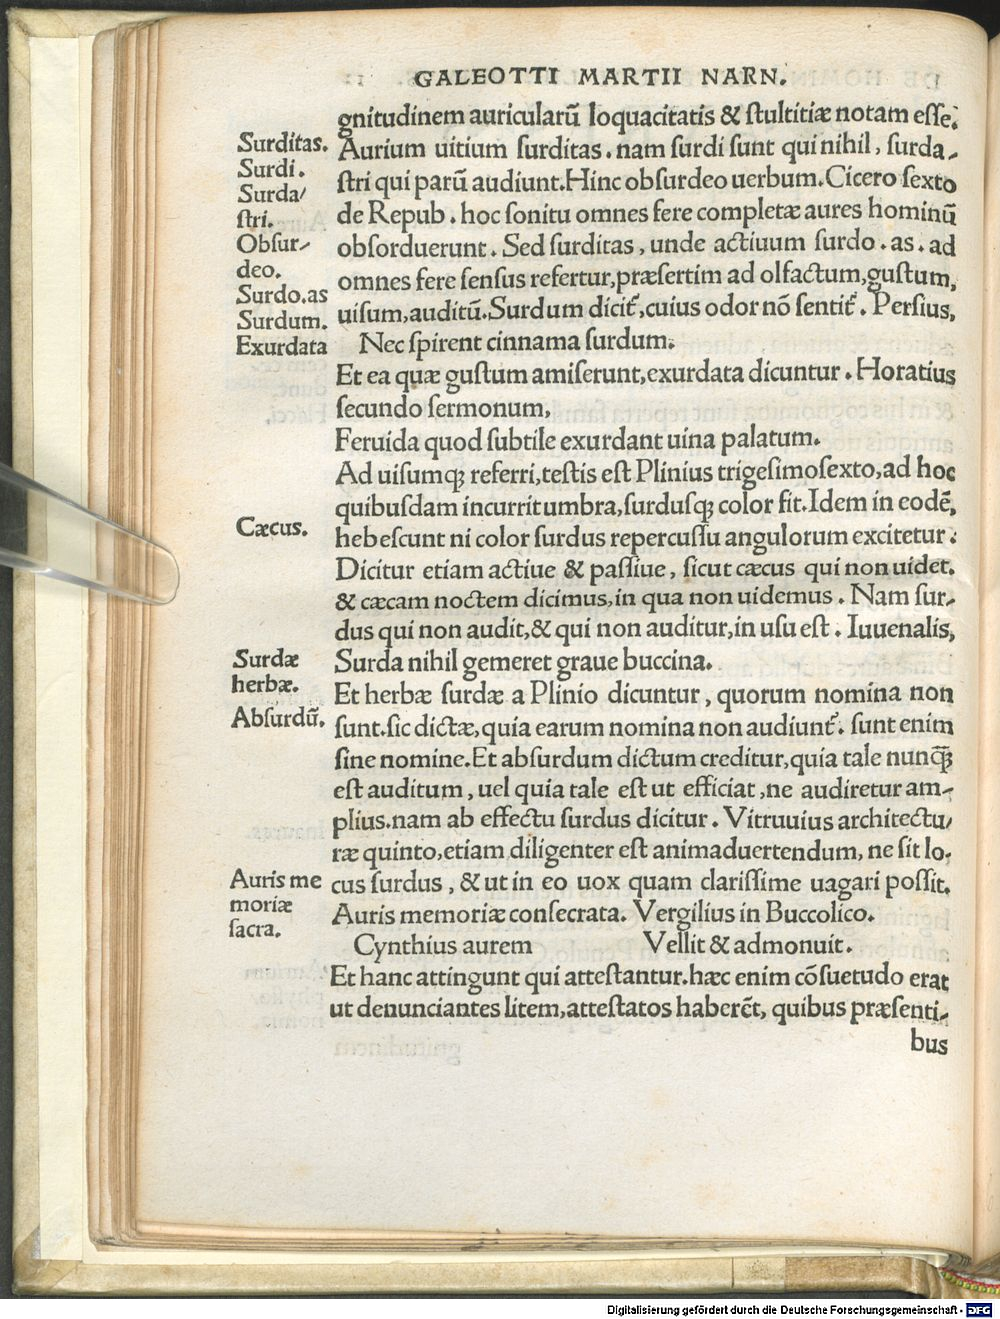 GALEOTTI MARTII NARN.
gnitudinem auricularū loquacitatis & ſtultitiæ notam eſſe.
Surditas.
Aurium uitium ſurditas. nam ſurdi ſunt qui nihil, ſurda-
Surdi.
Surda/
ſtri qui parū audiunt. Hinc obſurdeo uerbum. Cicero ſexto
ſtri.
de Repub. hoc ſonitu omnes fere completæ aures hominū
Obſur-
obſorduerunt. Sed ſurditas, unde actiuum ſurdo. as. ad
deo.
omnes fere ſenſus refertur, præſertim ad olfactum, guſtum,
Surdo.as
uiſum, auditū. Surdum dicit᷑, cuius odor nō ſentit᷑. Perſius,
Surdum.
Exurdata
Nec ſpirent cinnama ſurdum.
Et ea quæ guſtum amiſerunt, exurdata dicuntur. Horatius
ſecundo ſermonum,
Feruida quod ſubtile exurdant uina palatum.
Ad uiſumqꝫ referri, teſtis eſt Plinius trigeſimoſexto, ad hoc
quibuſdam incurrit umbra, ſurduſqꝫ color fit. Idem in eodē,
Cæcus.
hebeſcunt ni color ſurdus repercuſſu angulorum excitetur.
Dicitur etiam actiue & paſſiue, ſicut cæcus qui non uidet.
& cæcam noctem dicimus, in qua non uidemus. Nam ſur-
dus qui non audit, & qui non auditur, in uſu eſt. Iuuenalis,
Surdæ
Surda nihil gemeret graue buccina.
herbæ.
Et herbæ ſurdæ a Plinio dicuntur, quorum nomina non
Abſurdū.
ſunt. ſic dictæ, quia earum nomina non audiunt᷑. ſunt enim
ſine nomine. Et abſurdum dictum creditur, quia tale nunqꝫ̃
eſt auditum, uel quia tale eſt ut efficiat, ne audiretur am-
plius. nam ab effectu ſurdus dicitur. Vitruuius architectu/
ræ quinto, etiam diligenter eſt animaduertendum, ne ſit lo-
Auris me
cus ſurdus, & ut in eo uox quam clariſſime uagari poſſit.
moriæ
Auris memoriæ conſecrata. Vergilius in Buccolico.
ſacra.
Cynthius aurem Vellit & admonuit.
Et hanc attingunt qui atteſtantur. hæc enim cōſuetudo erat
ut denunciantes litem, atteſtatos haberēt, quibus præſenti-
bus
Digitalisierung gefördert durch die Deutsche Forschungsgemeinschaft - DFG